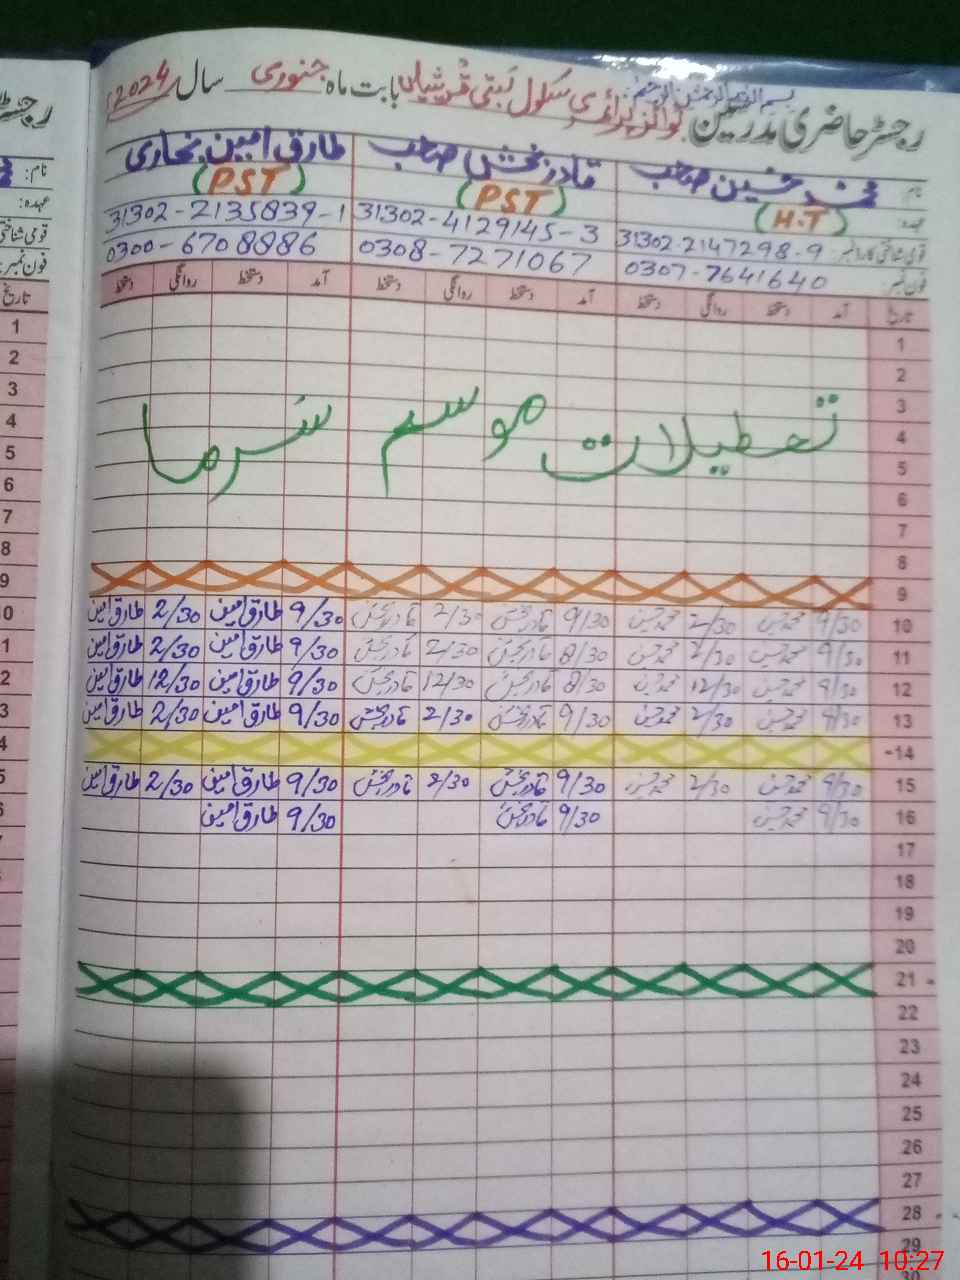 بسم اللہ الرحمٰن الرحیم
رجسٹر حاضری مدرسین بوائز پرائمری سکول بستی قریشیاں بابت ماہ جنوری سال 2024
نام محمد حسین صاحب قادر بخش صاحب طارق امین بخاری
عہدہ (H.T) (PST) (PST)
قومی شناختی کارڈ نمبر: 31302-2147298-9 31302-4129145-3 31302-2135839-1
فون نمبر: 0307-7641640 0308-7271067 0300-6708886
تاریخ آمد دستخط روانگی دستخط آمد دستخط روانگی دستخط آمد دستخط روانگی دستخط
1
2
3
4
5
تعطیلات موسم سرما
6
7
8
9
10 9/30 محمد حسین 2/30 محمد حسین 9/30 قادر بخش 2/30 قادر بخش 9/30 طارق امین 2/30 طارق امین
11 9/30 محمد حسین 2/30 محمد حسین 8/30 قادر بخش 2/30 قادر بخش 9/30 طارق امین 2/30 طارق امین
12 9/30 محمد حسین 12/30 محمد حسین 8/30 قادر بخش 12/30 قادر بخش 9/30 طارق امین 12/30 طارق امین
13 9/30 محمد حسین 2/30 محمد حسین 9/30 قادر بخش 2/30 قادر بخش 9/30 طارق امین 2/30 طارق امین
14
15 9/30 محمد حسین 2/30 محمد حسین 9/30 قادر بخش 2/30 قادر بخش 9/30 طارق امین 2/30 طارق امین
16 9/30 محمد حسین 9/30 قادر بخش 9/30 طارق امین
17
18
19
20
21
22
23
24
25
26
27
28
29
30
رجسٹر
نام:
عہدہ:
قومی شناختی
فون نمبر:
تاریخ
1
2
3
4
5
6
7
8
9
16-01-24 10:27